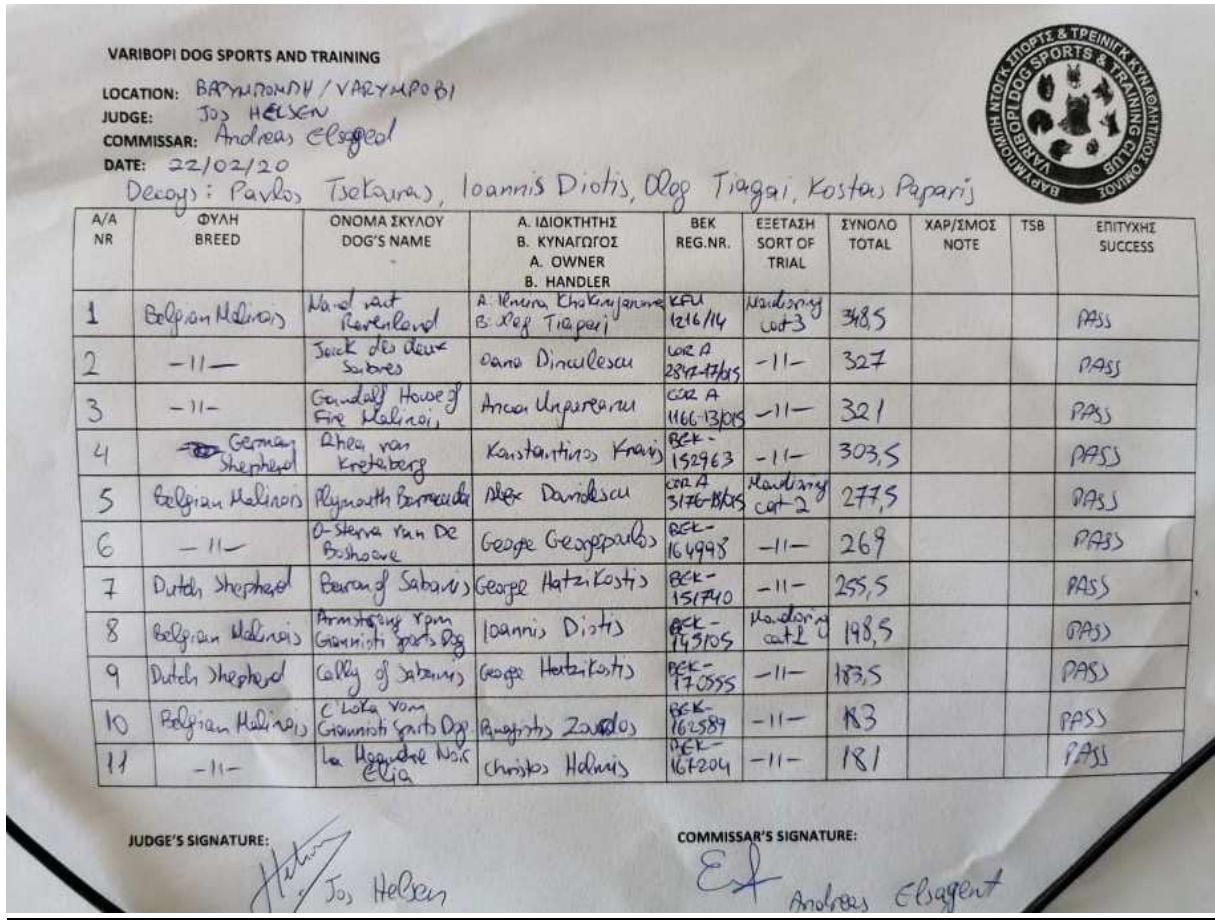 VARIBOPI DOG SPORTS AND TRAINING
LOCATION: ΒΑΡΥΜΠΟΜΠΗ / VARYMPOBI
JUDGE: JOS HELSEN
COMMISSAR: Andreas Elsaged
DATE: 22/02/20
Decoys: Pavlos Tsekouras, Ioannis Diotis, Oleg Tiagai, Kostas Paparis
ΒΑΡΥΜΠΟΜΠΗ ΝΤΟΓΚ ΣΠΟΡΤΣ & ΤΡΕΙΝΙΓΚ ΚΥΝΑΘΛΗΤΙΚΟΣ ΟΜΙΛΟΣ
VARIBOPI DOG SPORTS & TRAINING CLUB
Α/Α NR ΦΥΛΗ BREED ΟΝΟΜΑ ΣΚΥΛΟΥ DOG'S NAME Α. ΙΔΙΟΚΤΗΤΗΣ Β. ΚΥΝΑΓΩΓΟΣ A. OWNER B. HANDLER ΒΕΚ REG.NR. ΕΞΕΤΑΣΗ SORT OF TRIAL ΣΥΝΟΛΟ TOTAL ΧΑΡ/ΣΜΟΣ NOTE TSB ΕΠΙΤΥΧΗΣ SUCCESS
1 Belgian Malinois A: B: Oleg KFU 1216/14 Mondioring cat 3 348,5 PASS
2 -||- Jack des deux Sabres Oana Dinculescu COR A 2847-17/015 -||- 327 PASS
3 -||- Gandalf House of Fire Malinois Anca Ungureanu COR A 1166-13/015 -||- 321 PASS
4 German Shepherd Rhea von Kreteberg Konstantinos BEK-152963 -||- 303,5 PASS
5 Belgian Malinois Plymouth Barracuda Alex Davidescu COR A 3176-18/015 Mondioring cat 2 277,5 PASS
6 -||- Van De George Georgopoulos BEK-164998 -||- 269 PASS
7 Dutch Shepherd of Sabanis George Hatzikostis BEK-151740 -||- 255,5 PASS
8 Belgian Malinois Armstrong vom Giannisti Sports Dog Ioannis Diotis BEK-145105 Mondioring cat 1 198,5 PASS
9 Dutch Shepherd Cally of Sabanis George Hatzikostis BEK-170555 -||- 183,5 PASS
10 Belgian Malinois C'Loka vom Giannisti Sports Dog Panagiotis BEK-162589 -||- 183 PASS
11 -||- La Noir Elia Christos Holmis BEK-167204 -||- 181 PASS
JUDGE'S SIGNATURE: COMMISSAR'S SIGNATURE:
Jos Helsen Andreas Elsagent